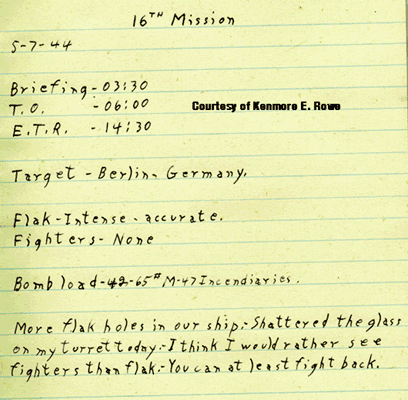 16TH Mission
5-7-44
Briefing-03:30
T.O. -06:00
Courtesy of Kenmore E. Rowe
E.T.R. -14:30
Target -Berlin- Germany.
Flak-Intense-accurate.
Fighters-None
Bomb load-42-65# M-47 Incendiaries.
More flak holes in our ship.-Shattered the glass
on my turret today.-I think I would rather see
fighters than flak.-You can at least fight back.